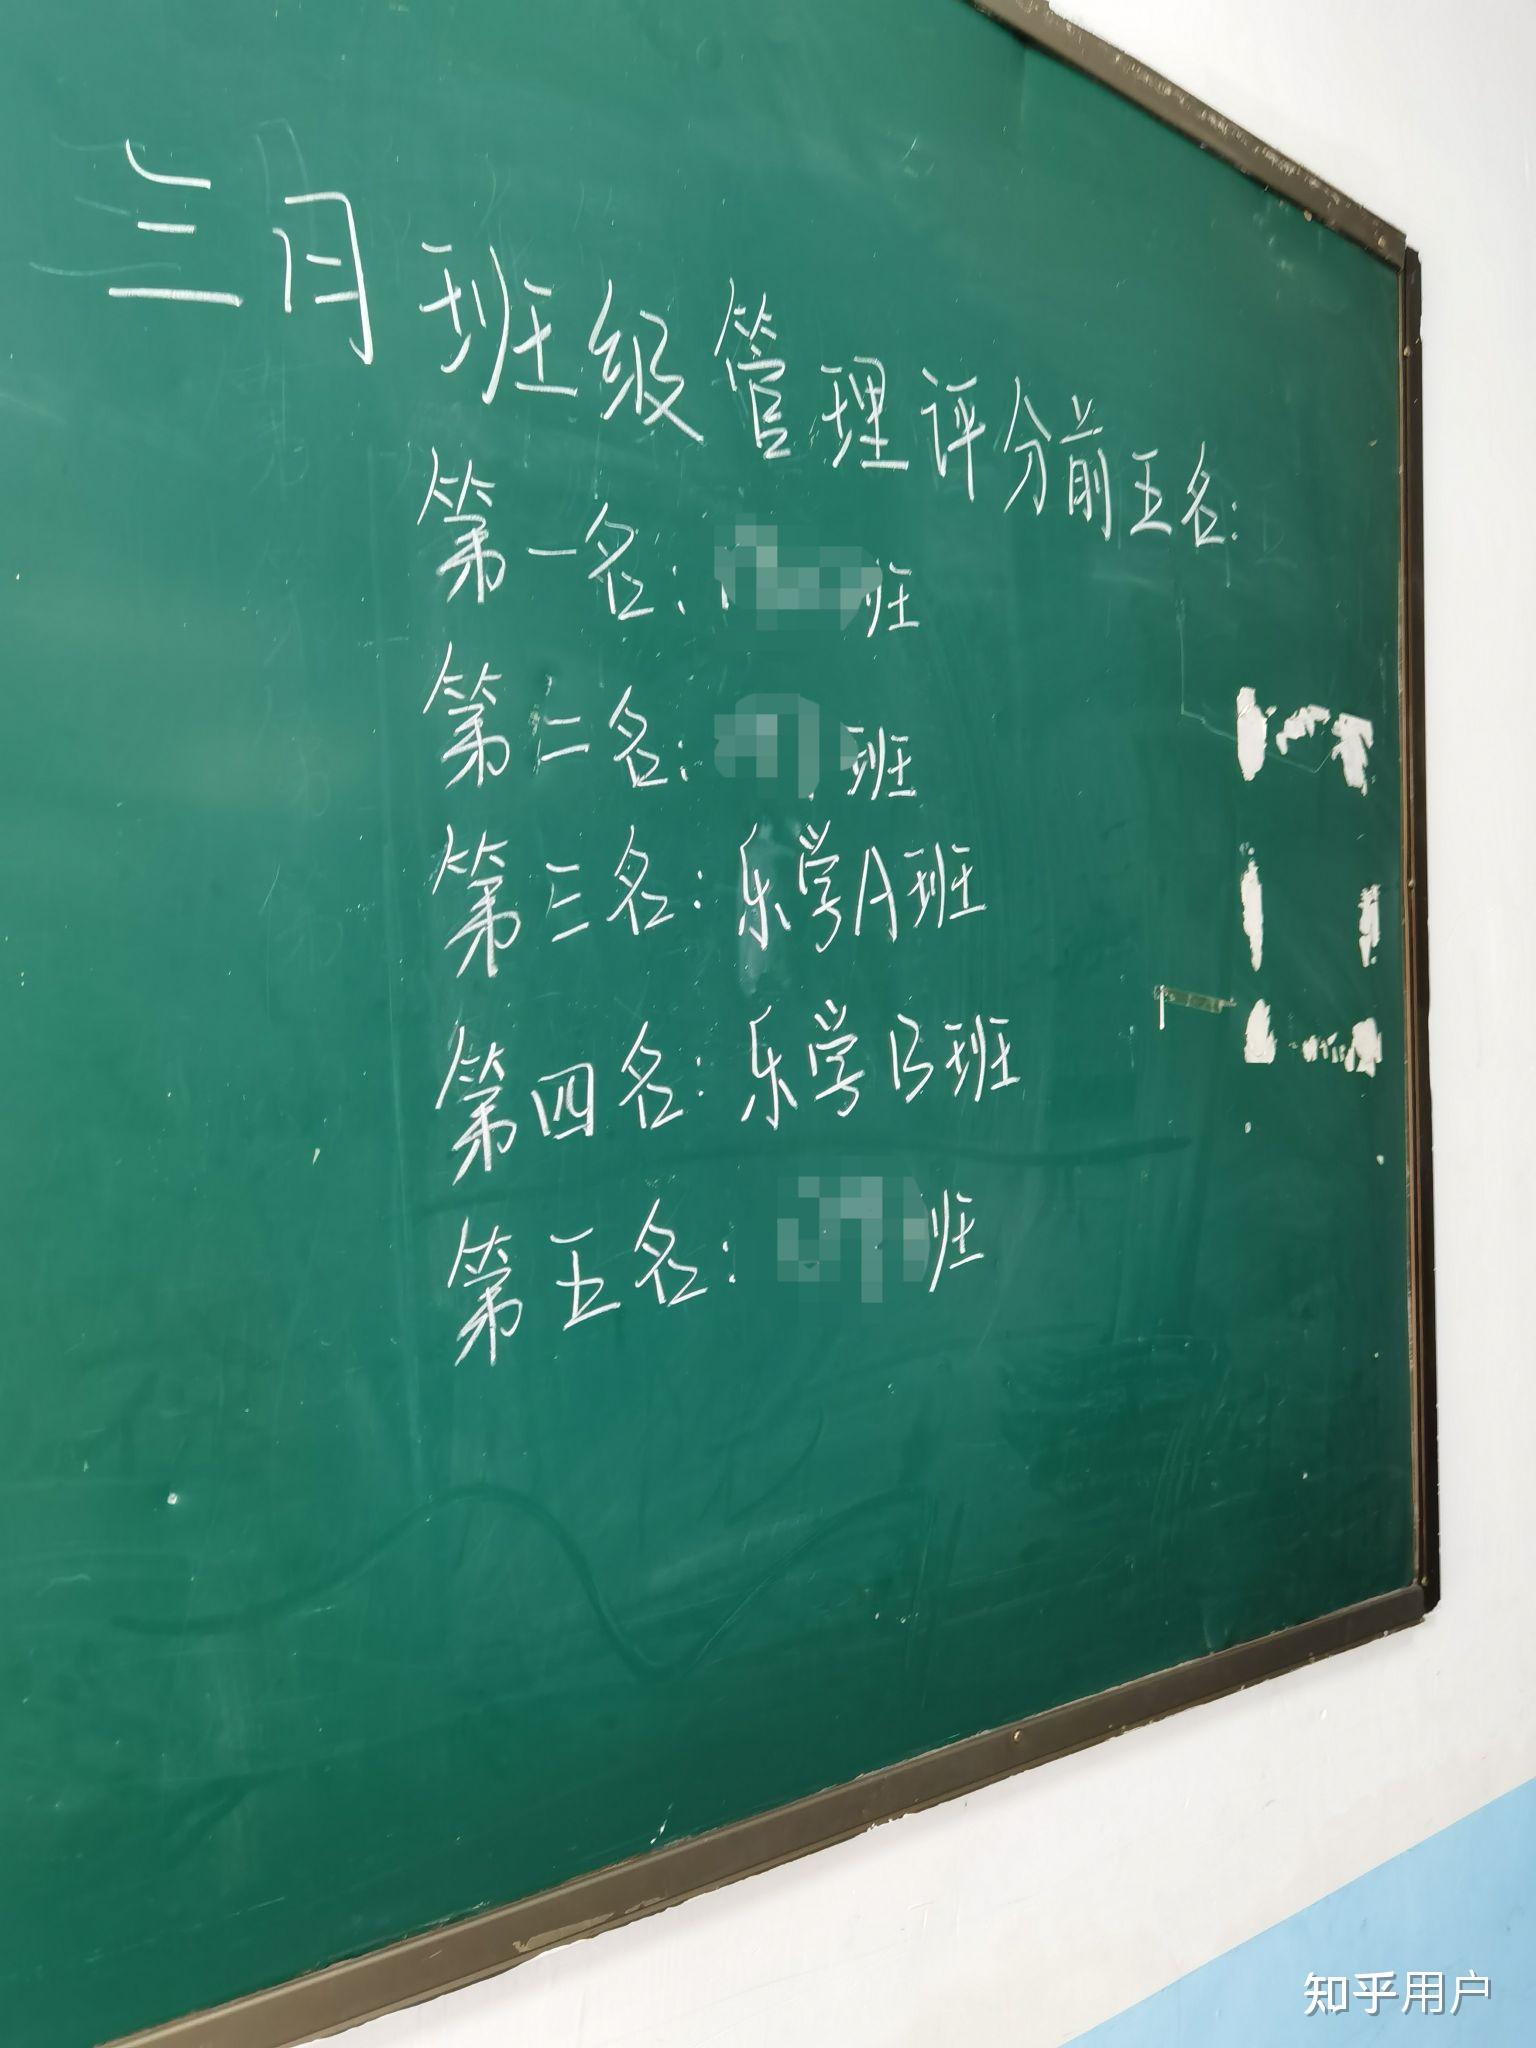 三月班级管理评分前五名:
第一名: 班
第二名: 班
第三名: 乐学A班
第四名: 乐学B班
第五名: 班
知乎用户